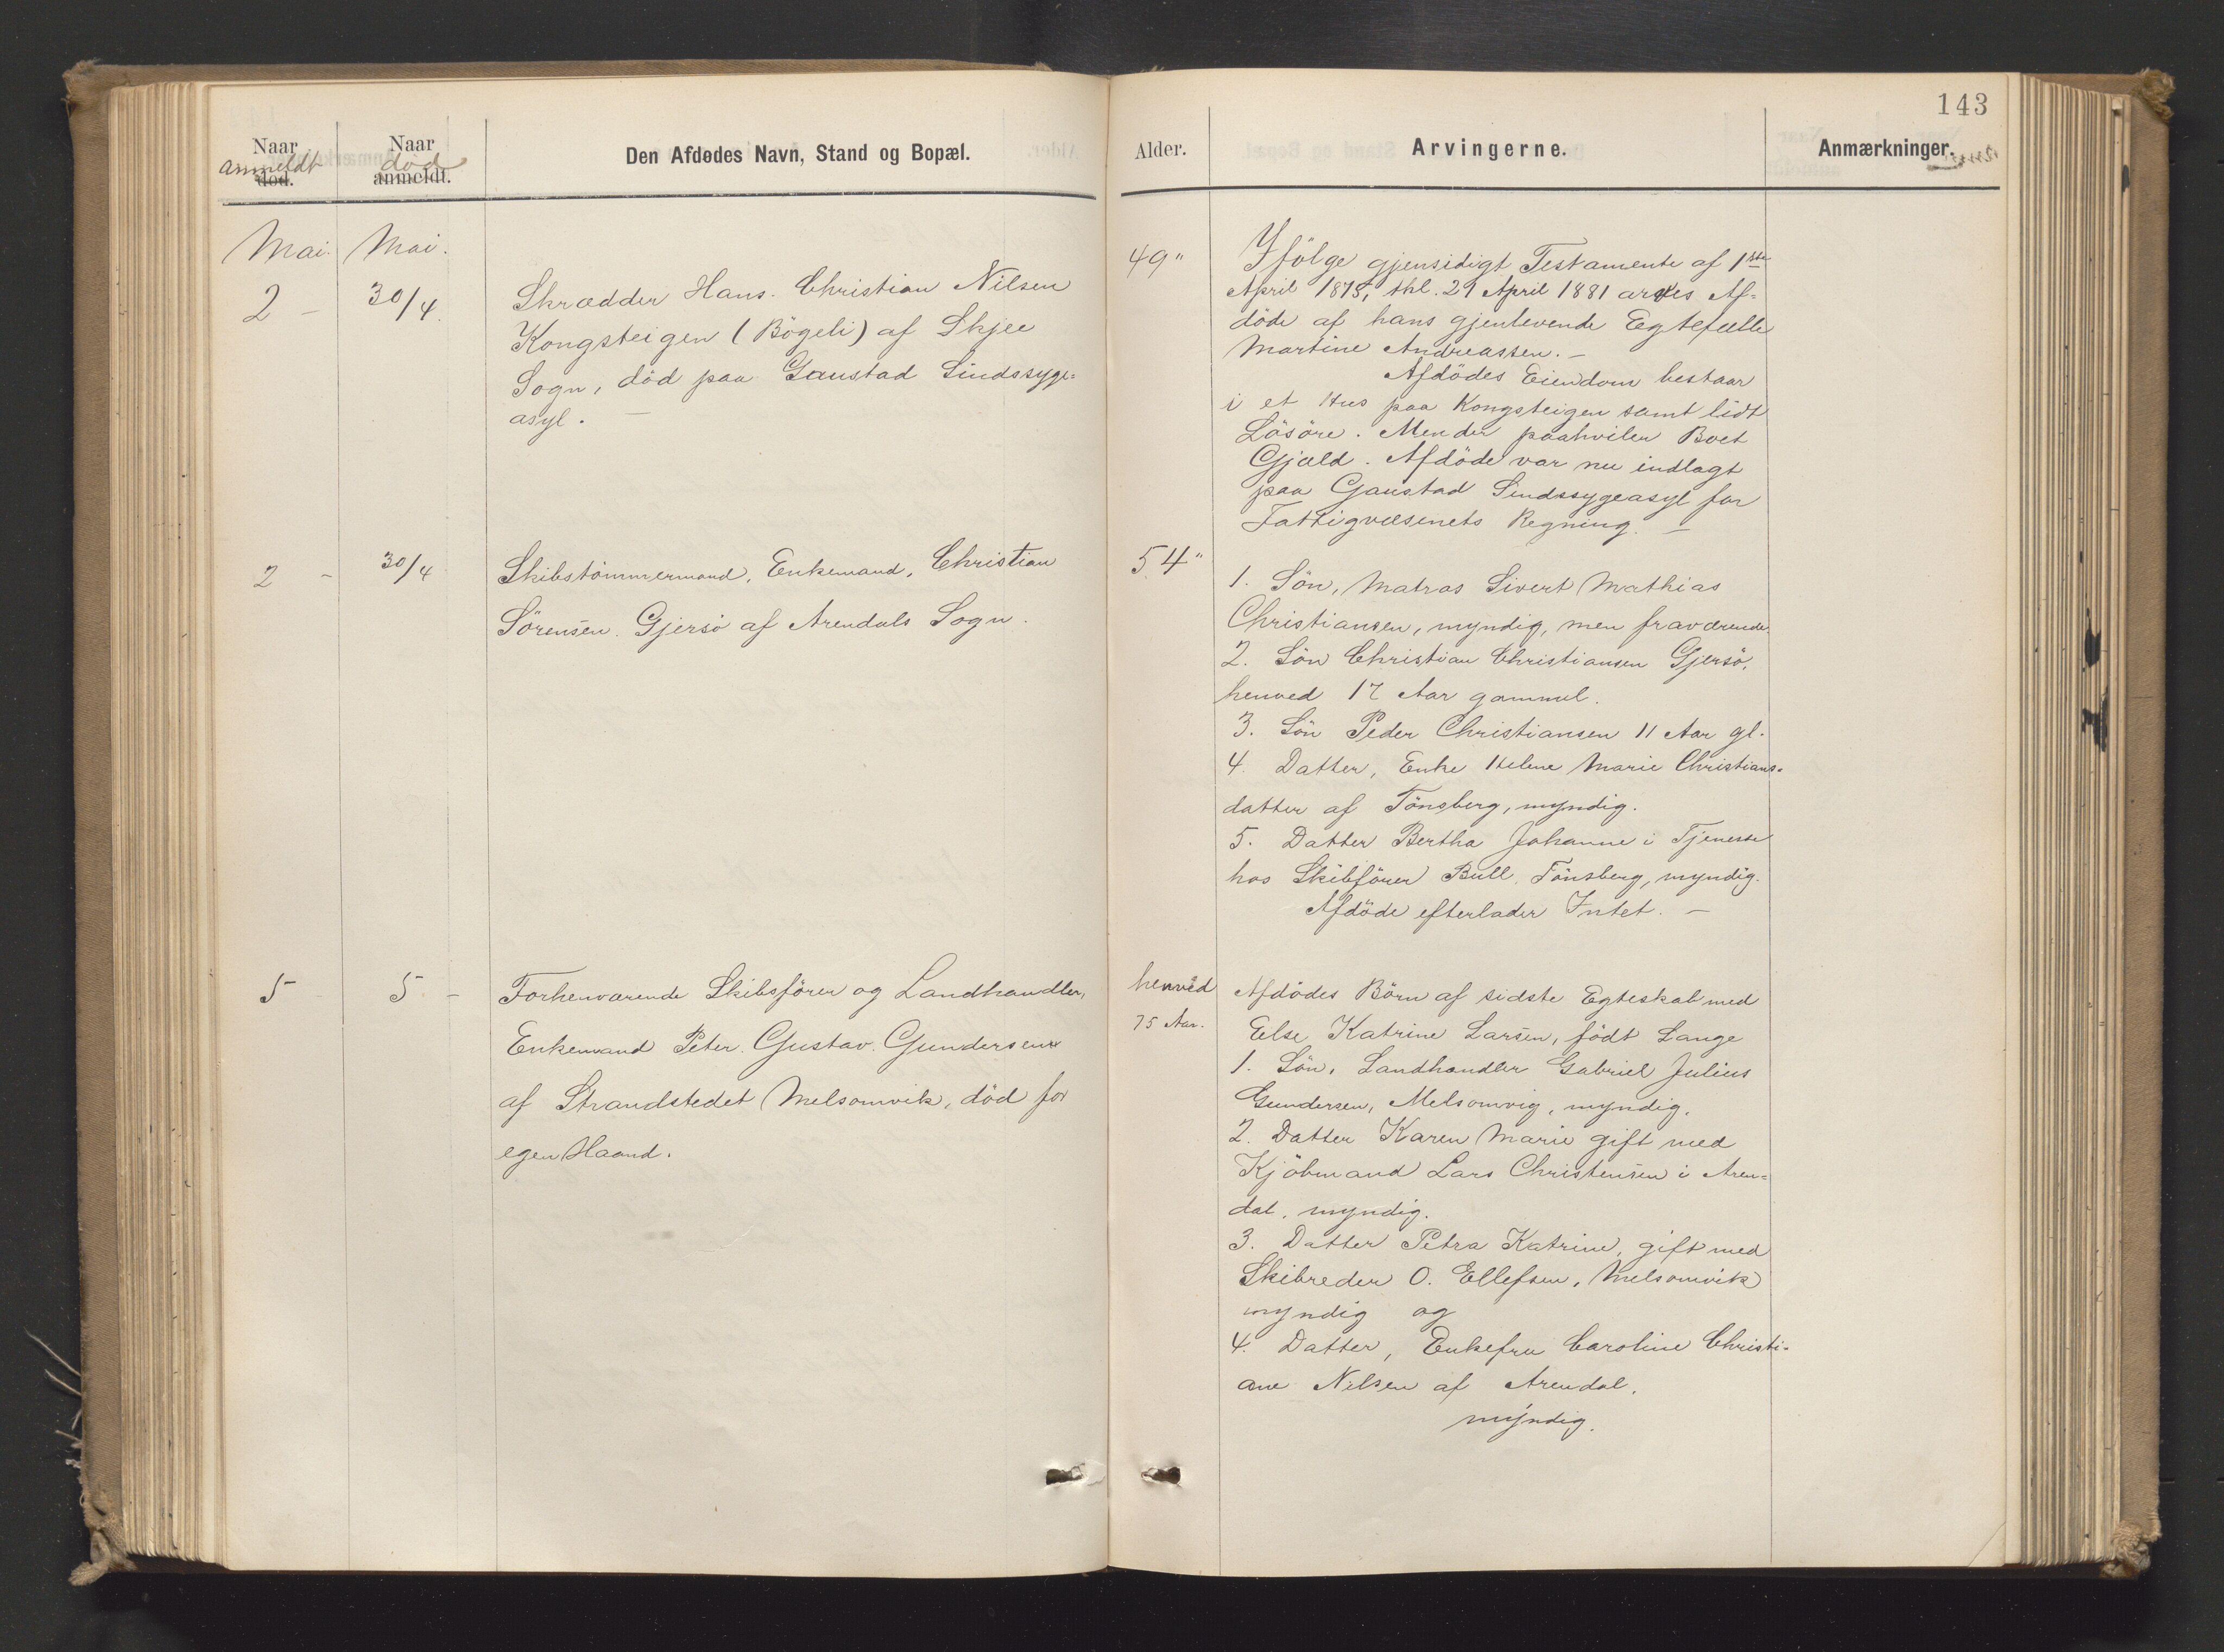 143
Naar
anmeldt
død.
Naar
død
anmeldt.
Den Afdødes Navn, Stand og Bopæl.
Alder.
Arvingerne.
Anmærkninger.
Mai. Mai.
2 - 30/4.
Skrædder Hans Christian Nilsen
Kongsteigen (Bögeli) af Skjee
Sogn, død paa Gaustad Sindssyge=
asyl.
49"
Ifölge gjensidigt Testamente af 1ste
April 1875, thl. 21 April 1881 arves Af=
döde af hans gjenlevende Egtefælle
Martine Andreassen. -
Afdödes Eiendom bestaar
i et Hus paa Kongsteigen samt lidt
Lösöre. Men der paahviler Boet
Gjæld. Afdöde var nu indlagt
paa Gaustad Sindssygeasyl for
Fattigvæsenets Regning. -
2 - 30/4
Skibstömmermand, Enkemand, Christian
Sörensen Gjersö af Arendals Sogn.
54"
1. Sön, Matros Sivert Mathias
Christiansen, myndig, men fraværende.
2. Sön Christian Christiansen Gjersö,
henved 17 Aar gammel.
3. Sön Peder Christiansen 11 Aar gl.
4. Datter, Enke Helene Marie Christians=
datter af Tönsberg, myndig.
5. Datter Bertha Johanne i Tjeneste
hos Skibsförer Bull, Tönsberg, myndig.
Afdöde efterlader Intet. -
5 5 -
Forhenværende Skibsförer og Landhandler,
Enkemand Peter Gustav Gundersen
af Strandstedet Melsomvik, död for
egen Haand.
henved
75 Aar.
Afdödes Börn af sidste Egteskab med
Else Katrine Larsen, födt Lange
1. Sön, Landhandler Gabriel Julius
Gundersen, Melsomvig, myndig.
2. Datter Karen Marie gift med
Kjöbmand Lars Christensen i Aren=
dal, myndig.
3. Datter Petra Katrine, gift med
Skibreder O. Ellefsen, Melsomvik
myndig og
4. Datter, Enkefru Caroline Christi=
ane Nilsen af Arendal,
myndig.